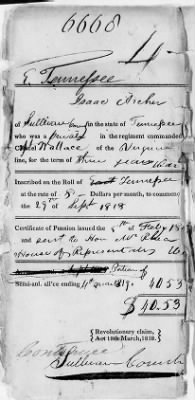 6668
E. Tennessee
Isaac Archer
of Sullivan Co. in the state of Tennessee
who was a private in the regiment commanded
by Col Wallace of the Virginia
line, for the term of three years
Inscribed on the Roll of East Tennessee
at the rate of 8 Dollars per month, to commence
on the 29th of Sept 1818
Certificate of Pension issued the 8th of July 1819
and sent to Hon
House of Representatives
Semi-anl. all'ce ending 4 March 1819. 40.53
$ 40.53
Revolutionary claim,
Act 18th March, 1818.
Sullivan County